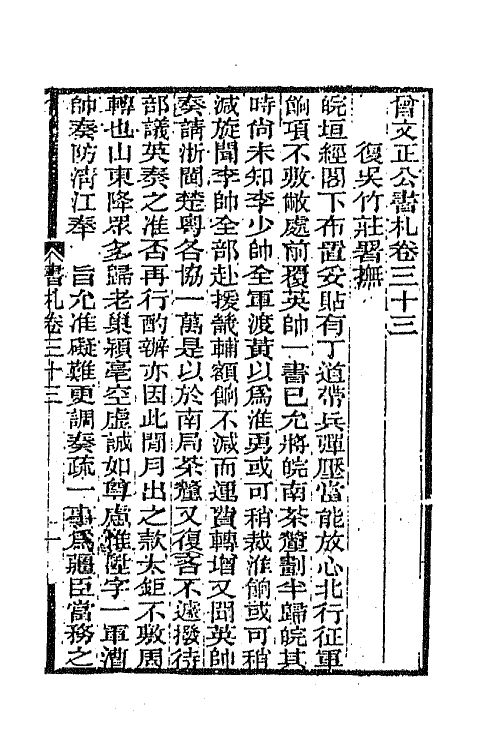 曾文正公書札卷三十三
復吳竹莊署撫
皖垣經閣下布置妥貼有丁道帶兵彈壓當能放心北行征軍
餉項不敷敝處前覆英帥一書已允將皖南茶釐劃半歸皖其
時尚未知李少帥全軍渡黃以爲淮勇或可稍裁淮餉或可稍
減旋聞李帥全部赴援畿輔額餉不減而運費轉增又聞英帥
奏請浙閩楚粵各協一萬是以於南局茶釐又復吝不遽撥待
部議英奏之准否再行酌辦亦因此間月出之款太鉅不敷周
轉也山東降眾多歸老巢潁亳空虛誠如尊慮惟陞字一軍漕
帥奏防清江奉 旨允准礙難更調奏疏一事爲疆臣當務之
書札卷三十三
一